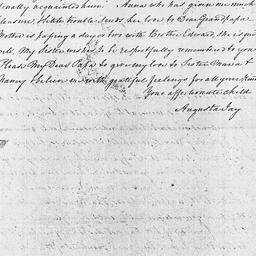 onally acquainted him. Anna who has given me much
pleasure. Little Fondle sends her love to Dear Grandpapa
Mother is staying a day or two with Brother Edward. She is qui
well. My Sister wishes to be respectfully remembered to you.
Please My Dear Papa to give my love to Sister Maria &
Nancy & believe me with grateful feelings for all your kind
Your affectionate child
Augusta Jay